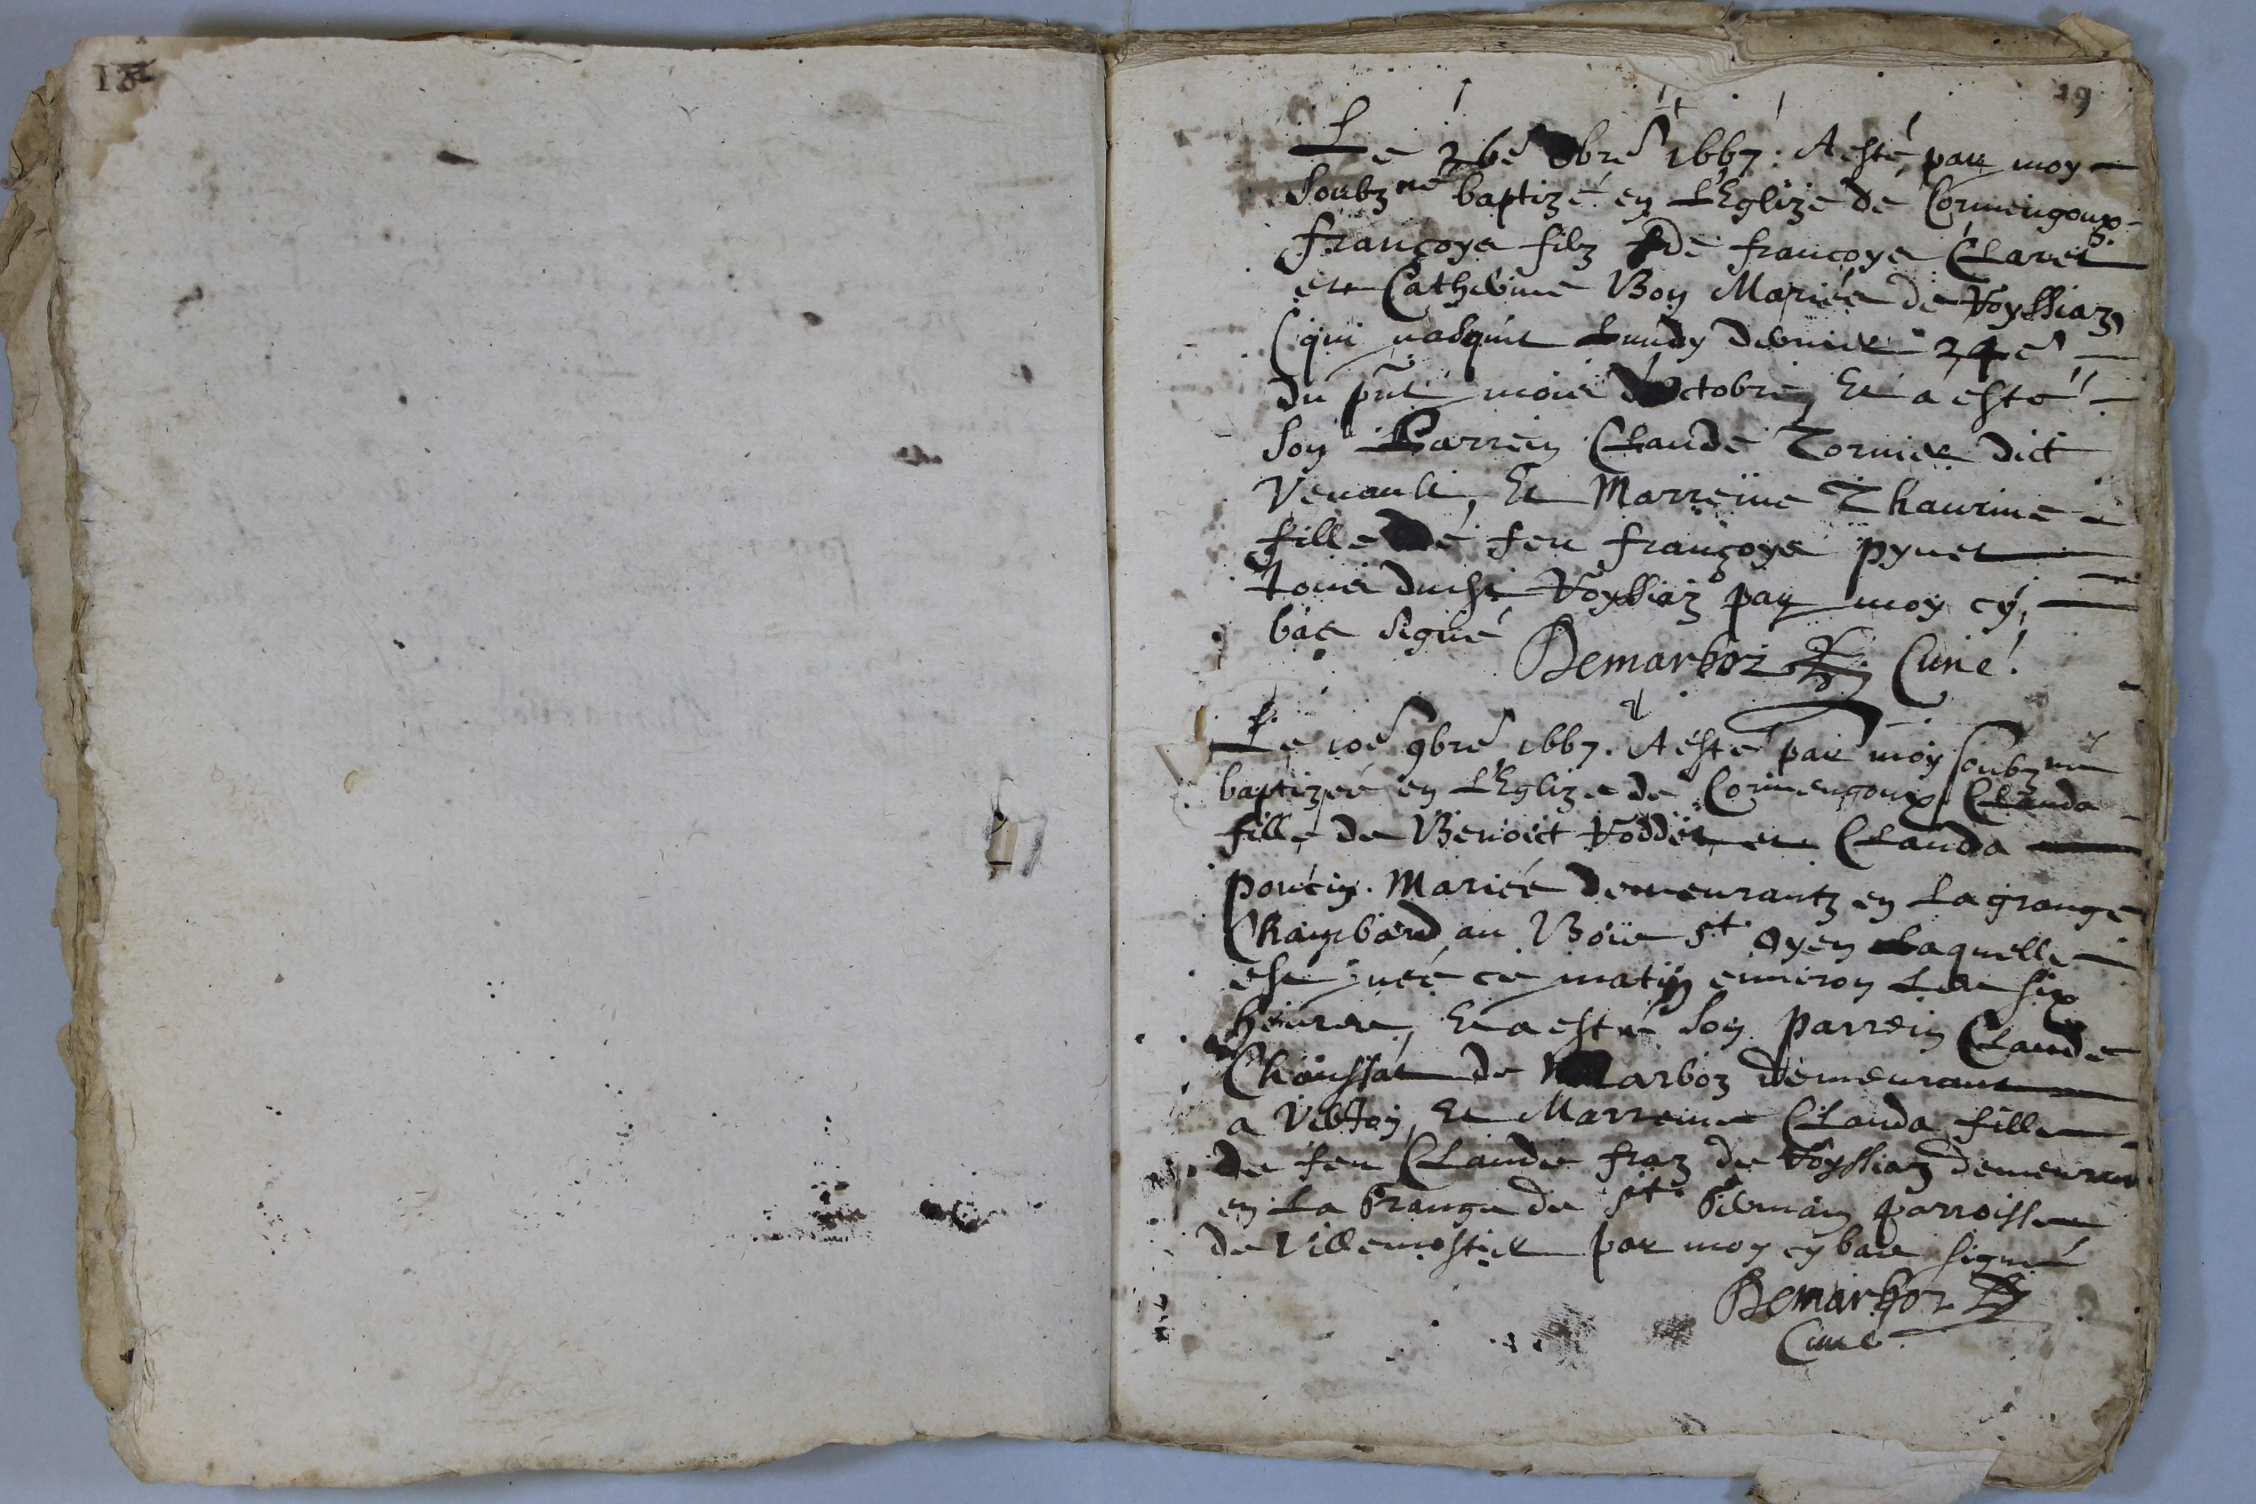 18
19
Le 26e 8bre 1667. A esté par moy
soubzné baptizé en L'Eglize de Cormengoux
françoys filz de françoys Claret
et Catherine Boy Mariés de Voyssiaz
qui nasquit Lundy dernier 24e
du pnt mois d'octobre, Et a esté
son Parrein Claude Tornier dict
Venault, Et Marreine Thaurine
fille de feu françoys pynet
tous dudit Voyssiaz par moy cy
bas signé
Demarboz Curé.
Le 10e 9bre 1667. A esté par moy soubzné
baptizée en L'Eglize de Cormengoux Clauda
fille de Benoict Voddet et Clauda
poncin. Mariés demeurantz en La grange
Chambard au Bois st Oyen Laquelle
est née ce matin environ Les six
heures, Et a esté son parrein Claude
Chaussat de Marboz demeurant
a Et Marreine Clauda fille
de feu Claude fraz de Voyssiaz demeurant
en La Grange de st Germain parroisse
de Villemostier par moy cy bas signé
Demarboz
Curé